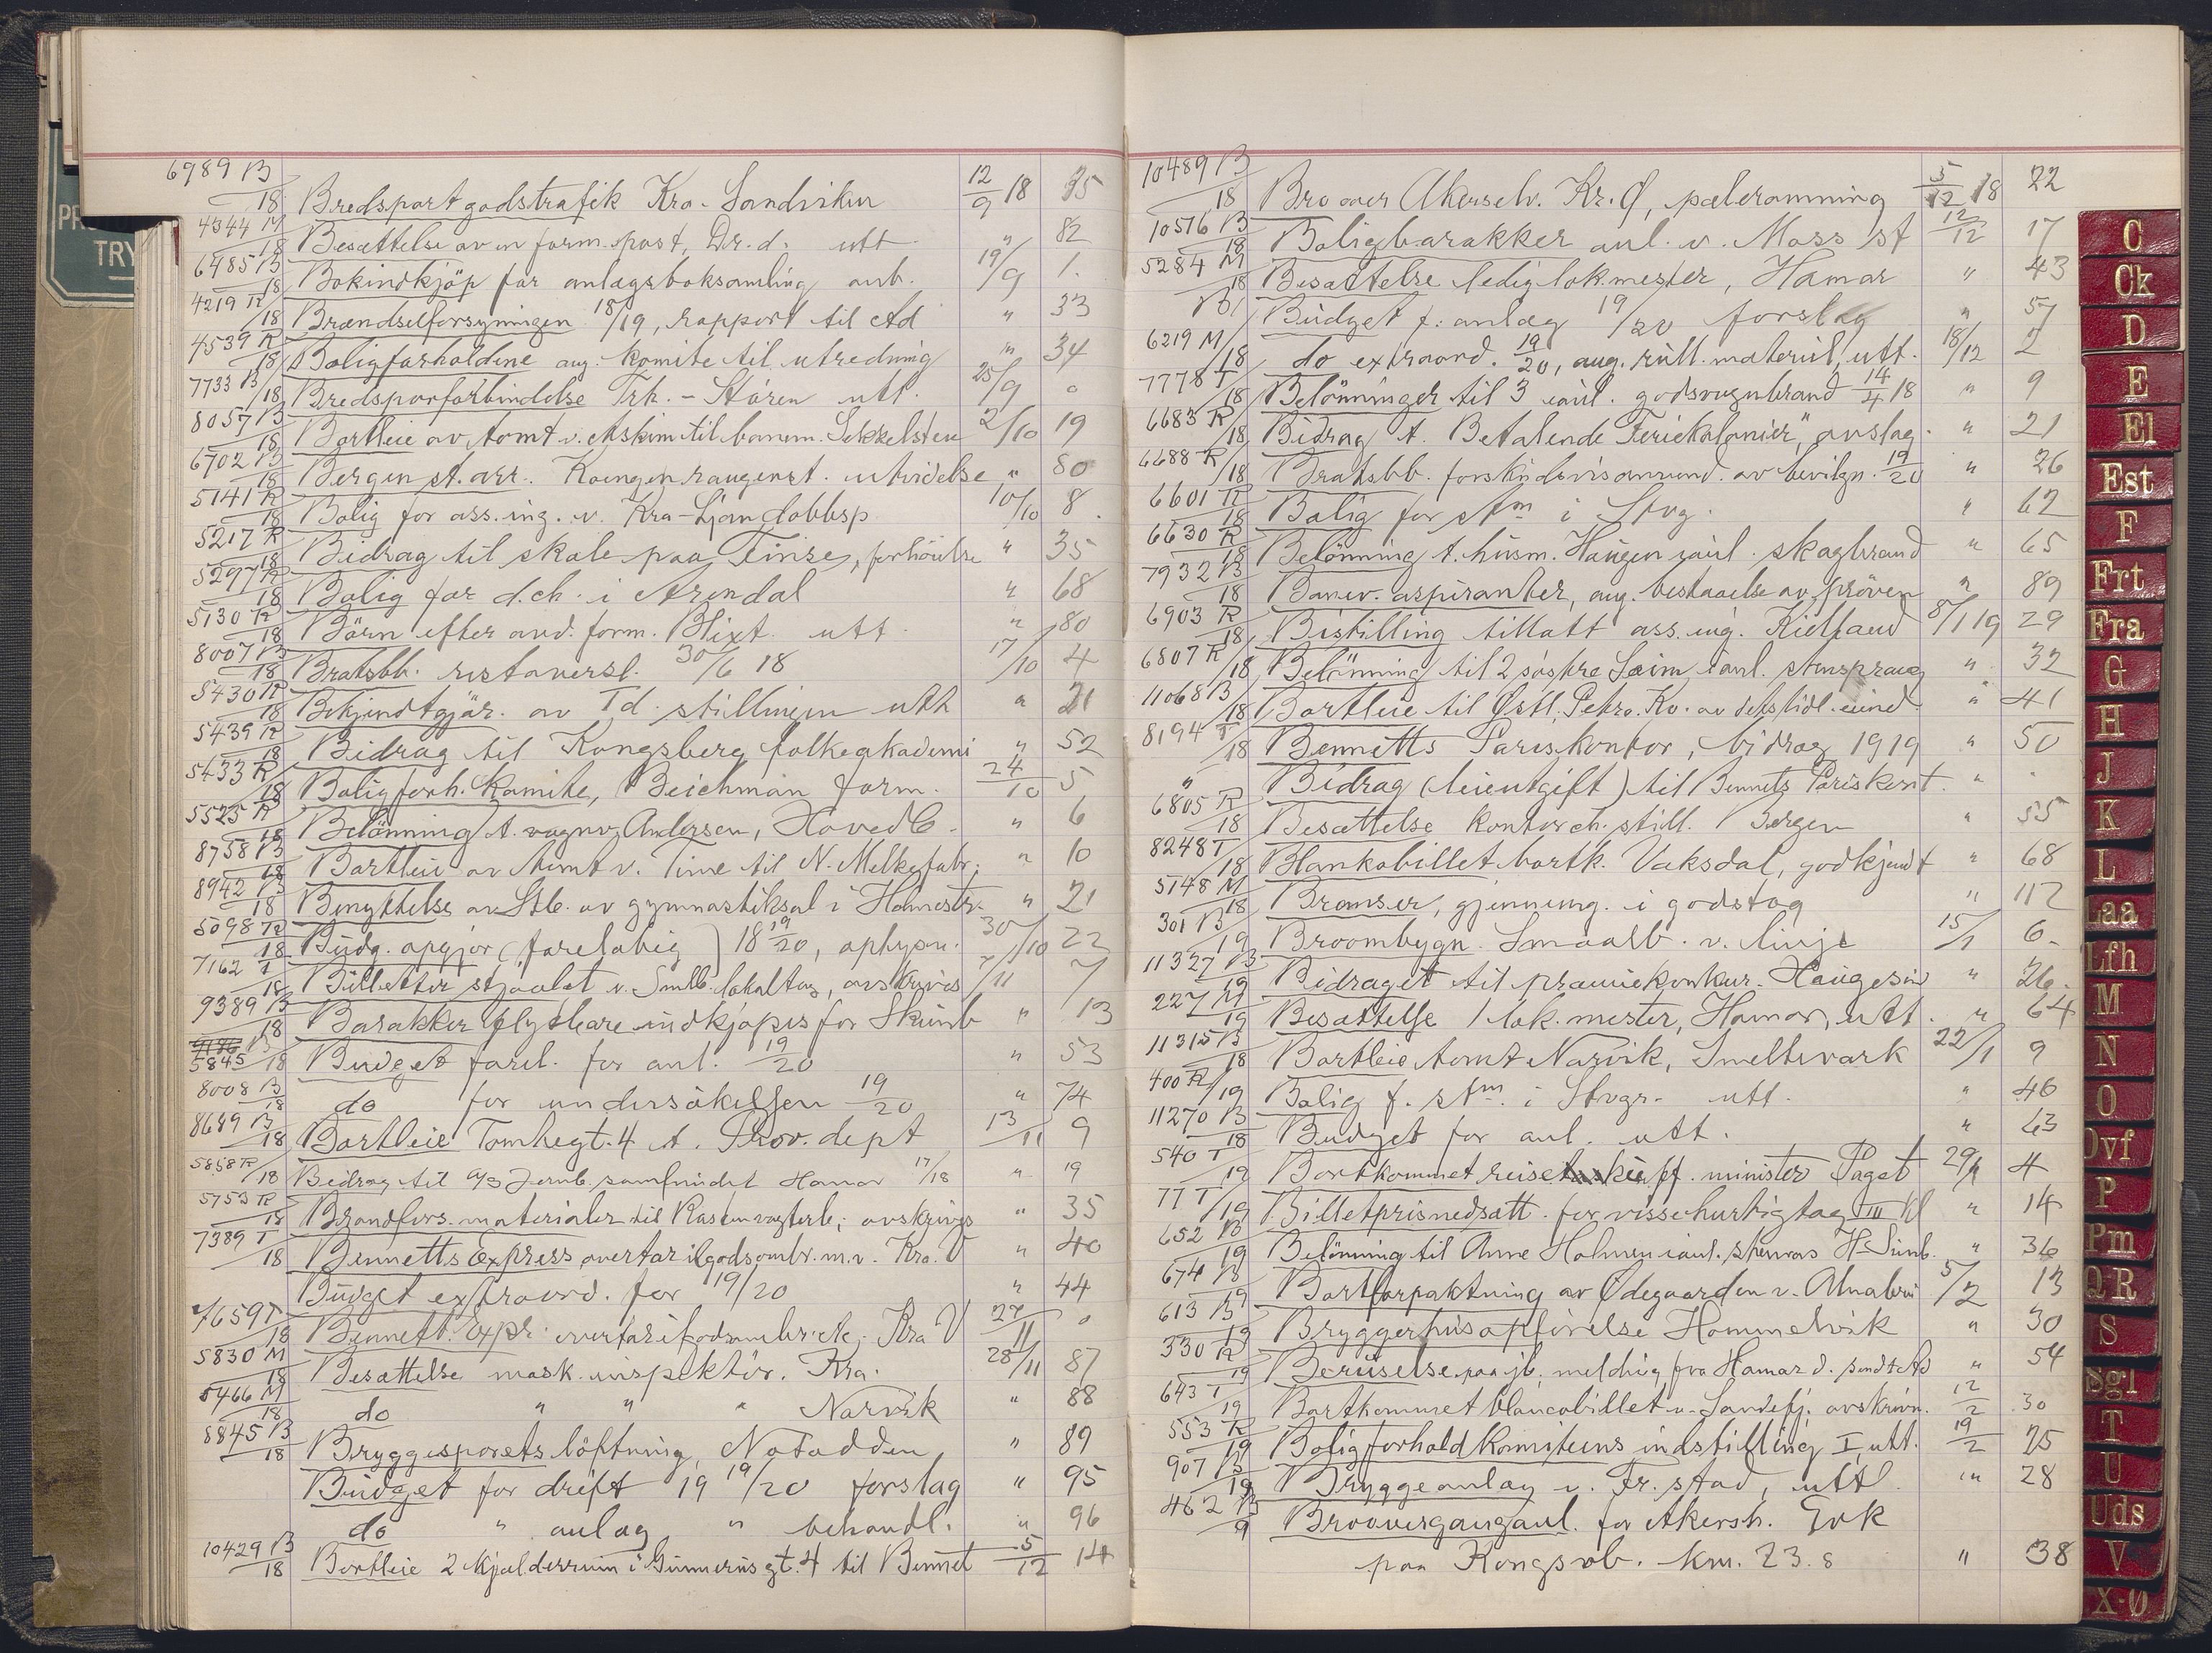 6989 B/18 Bredsportgodstrafik Kra. Sandviken 12/9 18 35
4344 M/18 Besættelse av en form. post, Dr. d. utt. " 82
6485 B/18 Bokindkjöp for anlagsboksamling anb. 19/9 1.
4219 R/18 Brændselforsyningen 18/19, rapport til Ad " 33
4539 R/18 Boligforholdene ang. komite til utredning " 34
7733 B/18 Bredsporforbindelse Trh. - Stören utt. 25/9 0
8057 B/18 Bortleie av tomt v. Askim til banem. Sekkelsten 2/10 19
6702 B/18 Bergen st. arr. Koengen rangerst. utvidelse " 50
5141 R/18 Bolig for ass. ing. v. Kra - Ljan dobbsp. 10/10 8
5217 R/18 Bidrag til skole paa Finse, forhöielse " 35
5297 R/18 Bolig for d.ch. i Arendal " 68
5130 R/18 Börn efter avd. form. Blixt utt. " 80
8007 B/18 Bratsbb. restaversl. 30/6 18 17/10 4
5430 R/18 Bekjendtgjör. av Td. stillingen utt " 21
5439 R/18 Bidrag til Kongsberg folkeakademi " 52
5433 R/18 Boligforh. komite, Beichman form. 24/10 5
5525 R/18 Belönning t. vognv. Andersen, Hoved B. " 6
8758 B/18 Bortleie av tomt v. Time til N. Melkefabr. " 10
8942 B/18 Benyttelse av Stb. av gymnastiksal i Holmestr. " 21
5098 R/18 Budg. opgjör (foreløbig) 18 19/20, oplysn. 30/10 22
7162 T/18 Billetter stjaalet v. Smlb. lokaltog, avskrives 7/11 7
9389 B/18 Barakker flytbare indkjöpes for Skinb " 13
5845 B/18 Budget forel. for anl. 19/20 " 53
8008 B/18 do for undersökelsen 19/20 " 74
8689 B/18 Bortleie Tomtegt. 4 t. Prov. dept 13/11 9
5858 R/18 Bidrag til A/S Jernb. samfundet Hamar 17/18 " 19
5753 R/18 Brandfors. materialer til Rasten vogterb., avskrives " 35
7389 T/18 Bennetts Express overtar ilgodsombr. m.v. Kra. V " 40
Budget extraord. for 19/20 " 44
7659 T/18 Bennett. Expr. overtar ilgodsombr. etc. Kra V 27/11 0
5830 M/18 Besættelse mask. inspektör. Kra. 28/11 87
5466 M/18 do " " " Narvik " 88
8845 B/18 Bryggesporets löftning, Notodden " 89
Budget for drift 19 19/20 forslag " 95
do " anlag " behandl. " 96
10429 B/18 Bortleie 2 kjælderrum i Gunnerus gt. 4 til Bennet 5/12 14
10489 B/18 Bro over Akerselv. Kr. Ø, pæleramming 5/12 18 22
10576 B/18 Boligbarakker anl. v. Moss st 12/12 17
5284 M/18 Besættelse ledig lok.mester, Hamar " 43
B/ Budget f. anlæg 19/20 forslag " 57
6219 M/18 do extraord. 19/20, ang. rull. materiel, utt. 18/12 2
7778 T/18 Belönninger til 3 i anl. godsvognbrand 14/4 18 " 9
6683 R/18 Bidrag t. "Betalende Feriekolonier", avslag. " 21
6688 R/18 Bratsbb. forskudsvis anvend. av bevilgn. 19/20 " 26
6601 R/18 Bolig for stm i Stvg. " 62
6630 R/18 Belönning t. husm. Haugen i anl. skogbrand " 65
7932 B/18 Banev. aspiranter, ang. bestaaelse av pröven " 89
6903 R/18 Bistilling tillatt ass. ing. Kielland 8/1 19 29
6807 R/18 Belönning til 2 söstre Seim i anl. stensprang " 32
11068 B/18 Bortleie til Østl. Petro. Ko. av dets tidl. eiend. " 41
8194 T/18 Bennetts Pariskontor, bidrag 1919 " 50
" Bidrag (leieutgift) til Bennets Pariskont. " "
6805 R/18 Besættelse kontorch. still. Bergen " 55
8248 T/18 Blankobillet bortk. Vaksdal, godkjendt " 68
5148 M/18 Bremser, gjennemg. i godstog " 112
301 B/19 Broombygn. Smaalb. v. linje 15/1 6.
11327 B/19 Bidraget til præmiekonkur. Haugesund " 26.
227 M/19 Besættelse 1 lok. mester, Hamar, utt. " 64
11315 B/18 Bortleie tomt Narvik, Smelteverk 22/1 9
400 R/19 Bolig f. stm. i Stvgr. utt. " 46
11270 B/18 Budget for anl. utt. " 63
540 T/19 Bortkommet reise f. minister Paget 29/1 4
77 T/19 Billetprisnedsatt. for visse hurtigtog III Kl " 14
652 B/19 Belönning til Anne Holmen i anl. stenras H-Sunb. " 36
674 B/19 Bortforpaktning av Ødegaarden v. Alnabru 5/2 13
613 B/19 Bryggerhusopförelse Hommelvik " 30
330 R/19 Beruselse paa jb. melding fra Hamar d. sendt Ad " 54
643 T/19 Bortkommet blancobillet v. Sandefj. avskrivn. 12/2 30
553 R/19 Boligforhold Komiteens indstilling I, utt. 19/2 25
907 B/19 Bryggeanlag v. Fr.stad, utt. " 28
462 B/9 Broovergang anl. for Akersh. Evk
paa Kongsvb. km. 23.8 " 38
PR
TRY
C
Ck
D
E
El
Est
F
Frt
Fra
G
H
J
K
L
Laa
Lfh
M
N
O
Ovf
P
Pm
Q R
S
Sgl
T
U
Uds
V
X-Ø